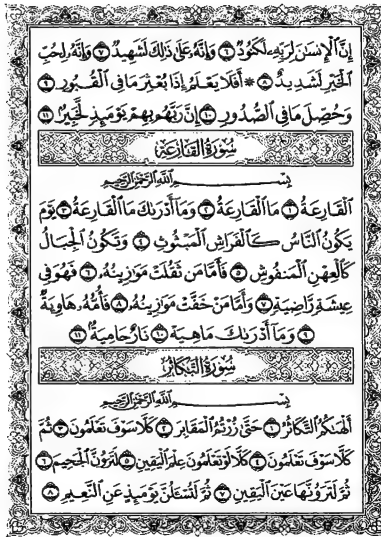 إِنَّ ٱلْإِنسَٰنَ لِرَبِّهِۦ لَكَنُودٌ ٦ وَإِنَّهُۥ عَلَىٰ ذَٰلِكَ لَشَهِيدٌ ٧ وَإِنَّهُۥ لِحُبِّ
ٱلْخَيْرِ لَشَدِيدٌ ٨ ۞ أَفَلَا يَعْلَمُ إِذَا بُعْثِرَ مَا فِى ٱلْقُبُورِ ٩
وَحُصِّلَ مَا فِى ٱلصُّدُورِ ١٠ إِنَّ رَبَّهُم بِهِمْ يَوْمَئِذٍ لَّخَبِيرٌۢ ١١
سُورَةُ ٱلْقَارِعَةِ
بِسْمِ ٱللَّهِ ٱلرَّحْمَٰنِ ٱلرَّحِيمِ
ٱلْقَارِعَةُ ١ مَا ٱلْقَارِعَةُ ٢ وَمَآ أَدْرَىٰكَ مَا ٱلْقَارِعَةُ ٣ يَوْمَ
يَكُونُ ٱلنَّاسُ كَٱلْفَرَاشِ ٱلْمَبْثُوثِ ٤ وَتَكُونُ ٱلْجِبَالُ
كَٱلْعِهْنِ ٱلْمَنفُوشِ ٥ فَأَمَّا مَن ثَقُلَتْ مَوَٰزِينُهُۥ ٦ فَهُوَ فِى
عِيشَةٍ رَّاضِيَةٍ ٧ وَأَمَّا مَنْ خَفَّتْ مَوَٰزِينُهُۥ ٨ فَأُمُّهُۥ هَاوِيَةٌ
٩ وَمَآ أَدْرَىٰكَ مَا هِيَهْ ١٠ نَارٌ حَامِيَةٌۢ ١١
سُورَةُ ٱلتَّكَاثُرِ
بِسْمِ ٱللَّهِ ٱلرَّحْمَٰنِ ٱلرَّحِيمِ
أَلْهَىٰكُمُ ٱلتَّكَاثُرُ ١ حَتَّىٰ زُرْتُمُ ٱلْمَقَابِرَ ٢ كَلَّا سَوْفَ تَعْلَمُونَ ٣ ثُمَّ
كَلَّا سَوْفَ تَعْلَمُونَ ٤ كَلَّا لَوْ تَعْلَمُونَ عِلْمَ ٱلْيَقِينِ ٥ لَتَرَوُنَّ ٱلْجَحِيمَ ٦
ثُمَّ لَتَرَوُنَّهَا عَيْنَ ٱلْيَقِينِ ٧ ثُمَّ لَتُسْـَٔلُنَّ يَوْمَئِذٍ عَنِ ٱلنَّعِيمِ ٨